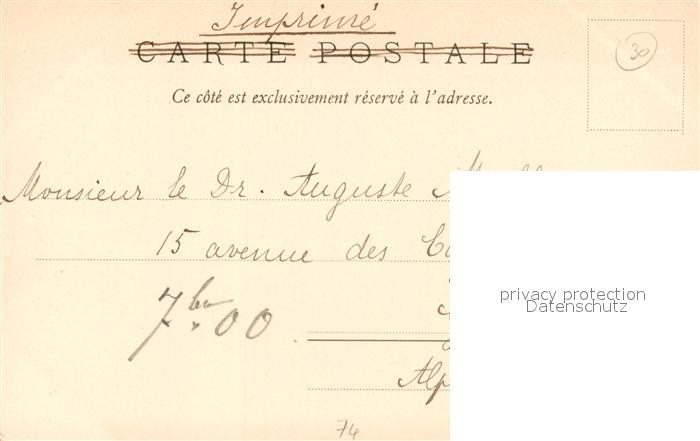 Imprimé
CARTE POSTALE
30
Ce côté est exclusivement réservé à l'adresse.
Monsieur le Dr. Auguste
15 avenue des
privacy protection
Datenschutz
7bre 00
74